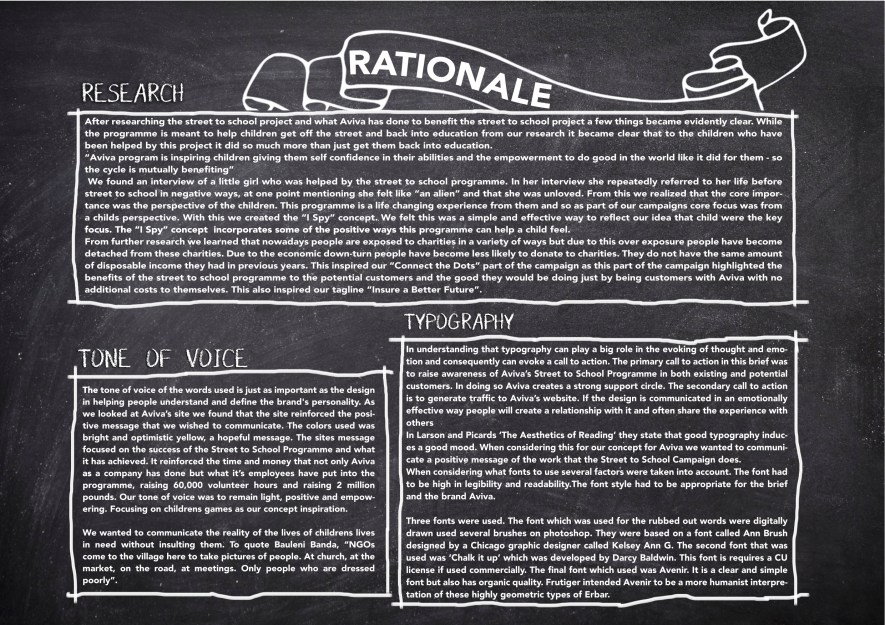 RATIONALE
RESEARCH
After researching the street to school project and what Aviva has done to benefit the street to school project a few things became evidently clear. While
the programme is meant to help children get off the street and back into education from our research it became clear that to the children who have
been helped by this project it did so much more than just get them back into education.
"Aviva program is inspiring children giving them self confidence in their abilities and the empowerment to do good in the world like it did for them - so
the cycle is mutually benefiting"
We found an interview of a little girl who was helped by the street to school programme. In her interview she repeatedly referred to her life before
street to school in negative ways, at one point mentioning she felt like "an alien" and that she was unloved. From this we realized that the core impor-
tance was the perspective of the children. This programme is a life changing experience from them and so as part of our campaigns core focus was from
a childs perspective. With this we created the "I Spy" concept. We felt this was a simple and effective way to reflect our idea that child were the key
focus. The "I Spy" concept incorporates some of the positive ways this programme can help a child feel.
From further research we learned that nowadays people are exposed to charities in a variety of ways but due to this over exposure people have become
detached from these charities. Due to the economic down-turn people have become less likely to donate to charities. They do not have the same amount
of disposable income they had in previous years. This inspired our "Connect the Dots" part of the campaign as this part of the campaign highlighted the
benefits of the street to school programme to the potential customers and the good they would be doing just by being customers with Aviva with no
additional costs to themselves. This also inspired our tagline "Insure a Better Future".
TONE OF VOICE
The tone of voice of the words used is just as important as the design
in helping people understand and define the brand's personality. As
we looked at Aviva's site we found that the site reinforced the posi-
tive message that we wished to communicate. The colors used was
bright and optimistic yellow, a hopeful message. The sites message
focused on the success of the Street to School Programme and what
it has achieved. It reinforced the time and money that not only Aviva
as a company has done but what it's employees have put into the
programme, raising 60,000 volunteer hours and raising 2 million
pounds. Our tone of voice was to remain light, positive and empow-
ering. Focusing on childrens games as our concept inspiration.
We wanted to communicate the reality of the lives of childrens lives
in need without insulting them. To quote Bauleni Banda, "NGOs
come to the village here to take pictures of people. At church, at the
market, on the road, at meetings. Only people who are dressed
poorly".
TYPOGRAPHY
In understanding that typography can play a big role in the evoking of thought and emo-
tion and consequently can evoke a call to action. The primary call to action in this brief was
to raise awareness of Aviva's Street to School Programme in both existing and potential
customers. In doing so Aviva creates a strong support circle. The secondary call to action
is to generate traffic to Aviva's website. If the design is communicated in an emotionally
effective way people will create a relationship with it and often share the experience with
others
In Larson and Picards 'The Aesthetics of Reading' they state that good typography induc-
es a good mood. When considering this for our concept for Aviva we wanted to communi-
cate a positive message of the work that the Street to School Campaign does.
When considering what fonts to use several factors were taken into account. The font had
to be high in legibility and readability.The font style had to be appropriate for the brief
and the brand Aviva.
Three fonts were used. The font which was used for the rubbed out words were digitally
drawn used several brushes on photoshop. They were based on a font called Ann Brush
designed by a Chicago graphic designer called Kelsey Ann G. The second font that was
used was 'Chalk it up' which was developed by Darcy Baldwin. This font is requires a CU
license if used commercially. The final font which used was Avenir. It is a clear and simple
font but also has organic quality. Frutiger intended Avenir to be a more humanist interpre-
tation of these highly geometric types of Erbar.